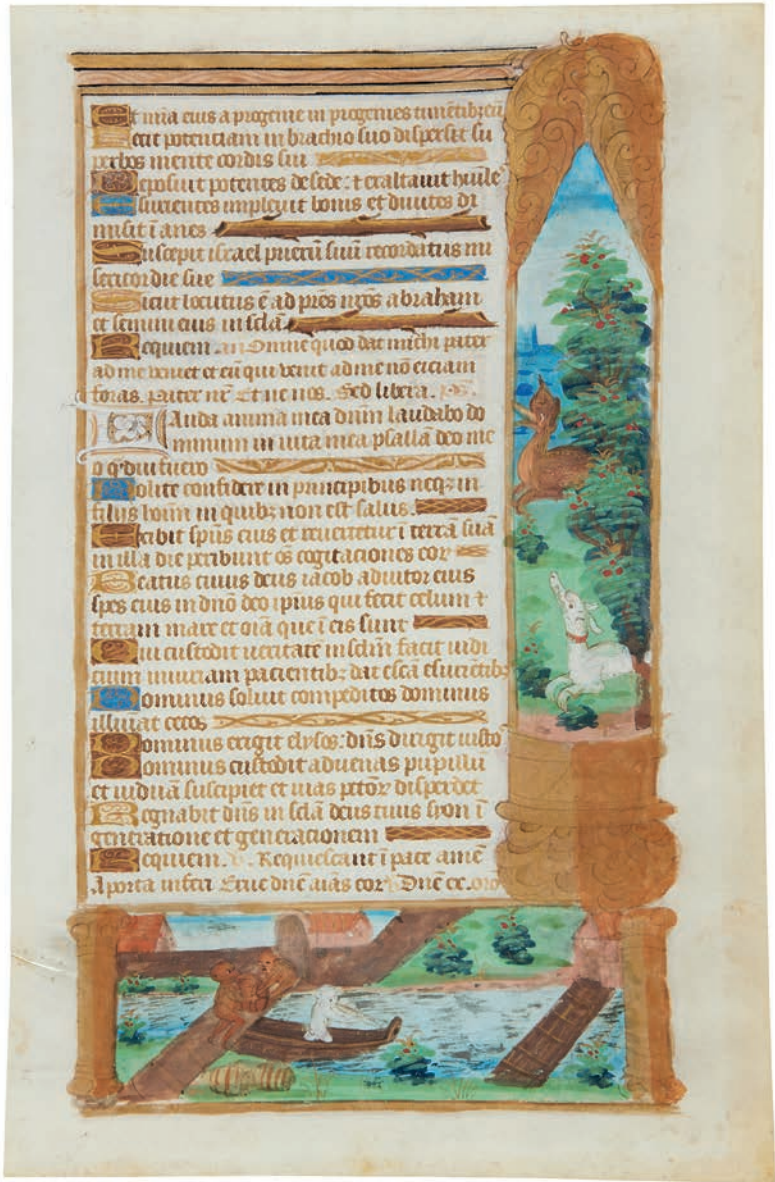 Et mia eius a progenie in progenies timētibꝫ eū
Fecit potenciam in brachio suo dispersit su
perbos mente cordis sui
Deposuit potentes de sede: ⁊ exaltauit huīle
Esurientes impleuit bonis et diuites di
misit ī anes
Suscepit israel puerū suū recordatus mi
sericordie sue
Sicut locutus ē ad pr̄es nr̄os abraham
et semini eius in sclā
Requiem. an Omne quod dat michi pater
ad me veniet et eū qui venit ad me nō eiciam
foras. pater nr̄ Et ne nos. Sed libera. ps.
Lauda anima mea dnm̄ laudabo do
minum in uita mea psallā deo me
o qͣdiu fuero
Nolite confidere in principibus neqꝫ in
filiis hoīm in quibꝫ non est salus.
Exibit spūs eius et reuertetur ī terrā suā
in illa die peribunt oēs cogitaciones eor
Beatus cuius deus iacob adiutor eius
spes eius in dnō deo ipsius qui fecit celum ⁊
terram mare et oīa que ī eis sunt
Qui custodit ueritate in sclm̄ facit iudi
cium iniuriam pacientibꝫ dat escā esurientibꝫ
Dominus soluit compeditos dominus
illuīat cecos
Dominus erigit elysos: dn̄s diligit iusto
Dominus custodit aduenas pupillū
et uiduā suscipiet et uias pctor̄ disperdet
Regnabit dn̄s in sclā deus tuus syon ī
generatione et generacionem
Requiem. v. Requiescant ī pace amē
A porta inferi Erue dnē aīas eor̄ Dnē ex. oro